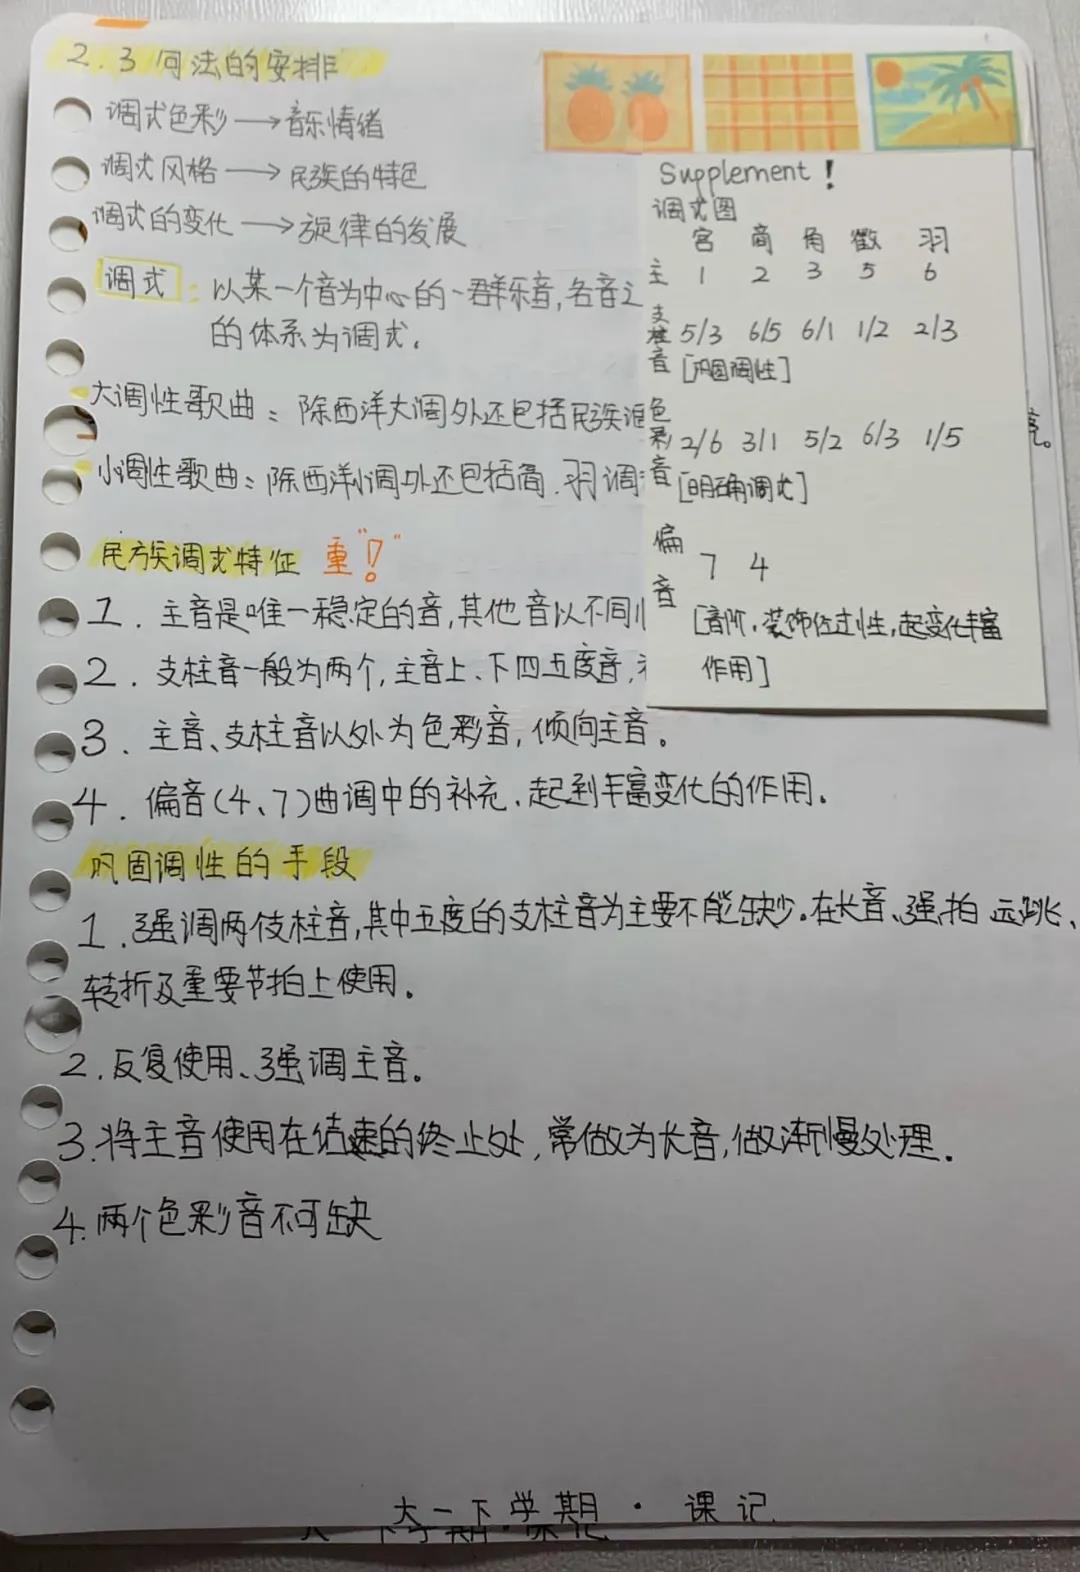 2.3 间法的安排
调式色彩→音乐情绪
调式风格→民族的特色
调式的变化→旋律的发展
调式：以某一个音为中心的一群乐音,各音之
的体系为调式。
大调性歌曲：除西洋大调外还包括民族
小调性歌曲：除西洋小调外还包括商、羽调
民族调式特征 重"！"
1. 主音是唯一稳定的音,其他音以不同
2. 支柱音一般为两个,主音上、下四五度音,
3. 主音、支柱音以外为色彩音,倾向主音。
4. 偏音(4、7)曲调中的补充、起到丰富变化的作用。
巩固调性的手段
1.强调两个支柱音,其中五度的支柱音为主要不能缺少。在长音、强拍 远跳、
转折及重要节拍上使用。
2.反复使用、强调主音。
3.将主音使用在结速的终止处,常做为长音,做渐慢处理。
4.两个色彩音不可缺
Supplement！
调式图
宫 商 角 徵 羽
主 1 2 3 5 6
支柱音 5/3 6/5 6/1 1/2 2/3
[巩固调性]
色彩音 2/6 3/1 5/2 6/3 1/5
[明确调式]
偏音 7 4
[音阶,装饰经过性,起变化丰富
作用]
亮。
大一下学期·课记